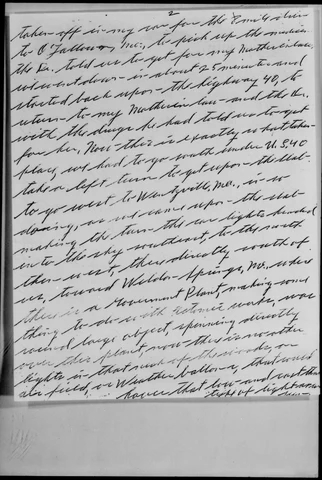 2
taken off in my car for the 8 mile drive
to O'Fallon, Mo., to pick up the medicine
the Dr. told us to get for my Mother in law,
we went down in about 25 minutes and
started back upon the highway 40, to
return to my Mother in law and the Dr.
with the drugs he had told us to get
for her, Now this is exactly what taken
place, we had to go south under U.S. 40
take a left turn to get upon the slab
to go west to Wentzville, Mo., in so
doing, as we came upon the slab
making the turn the car lights headed
into the sky southeast, to the south
then west, there directly south of
us, toward Weldon Springs, Mo. where
there is a Government Plant, making some
thing to do with Atomic works, was
weird large object, spinning directly
over this plant, now there is no other
lights in that neck of the woods, or
air field, or Weather balloon, that would
hover that low and cast that
type of light